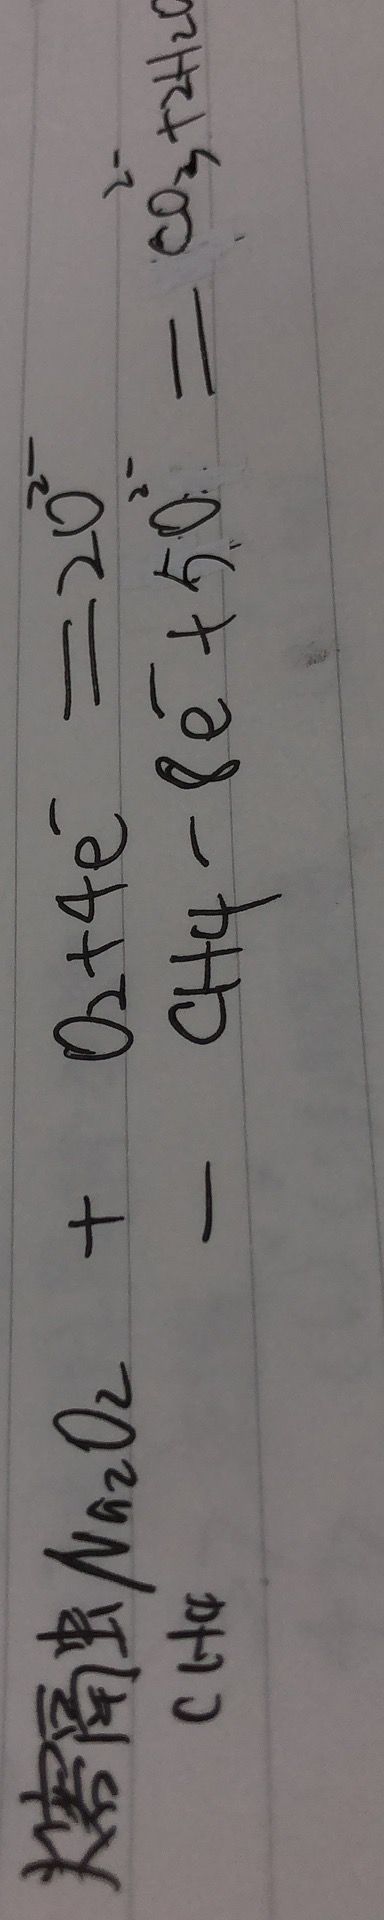 熔融 Na₂O₂ + O₂+4e⁻ = 2O²⁻
CH₄ - CH₄ - 8e⁻ + 5O²⁻ = CO₃²⁻+2H₂O